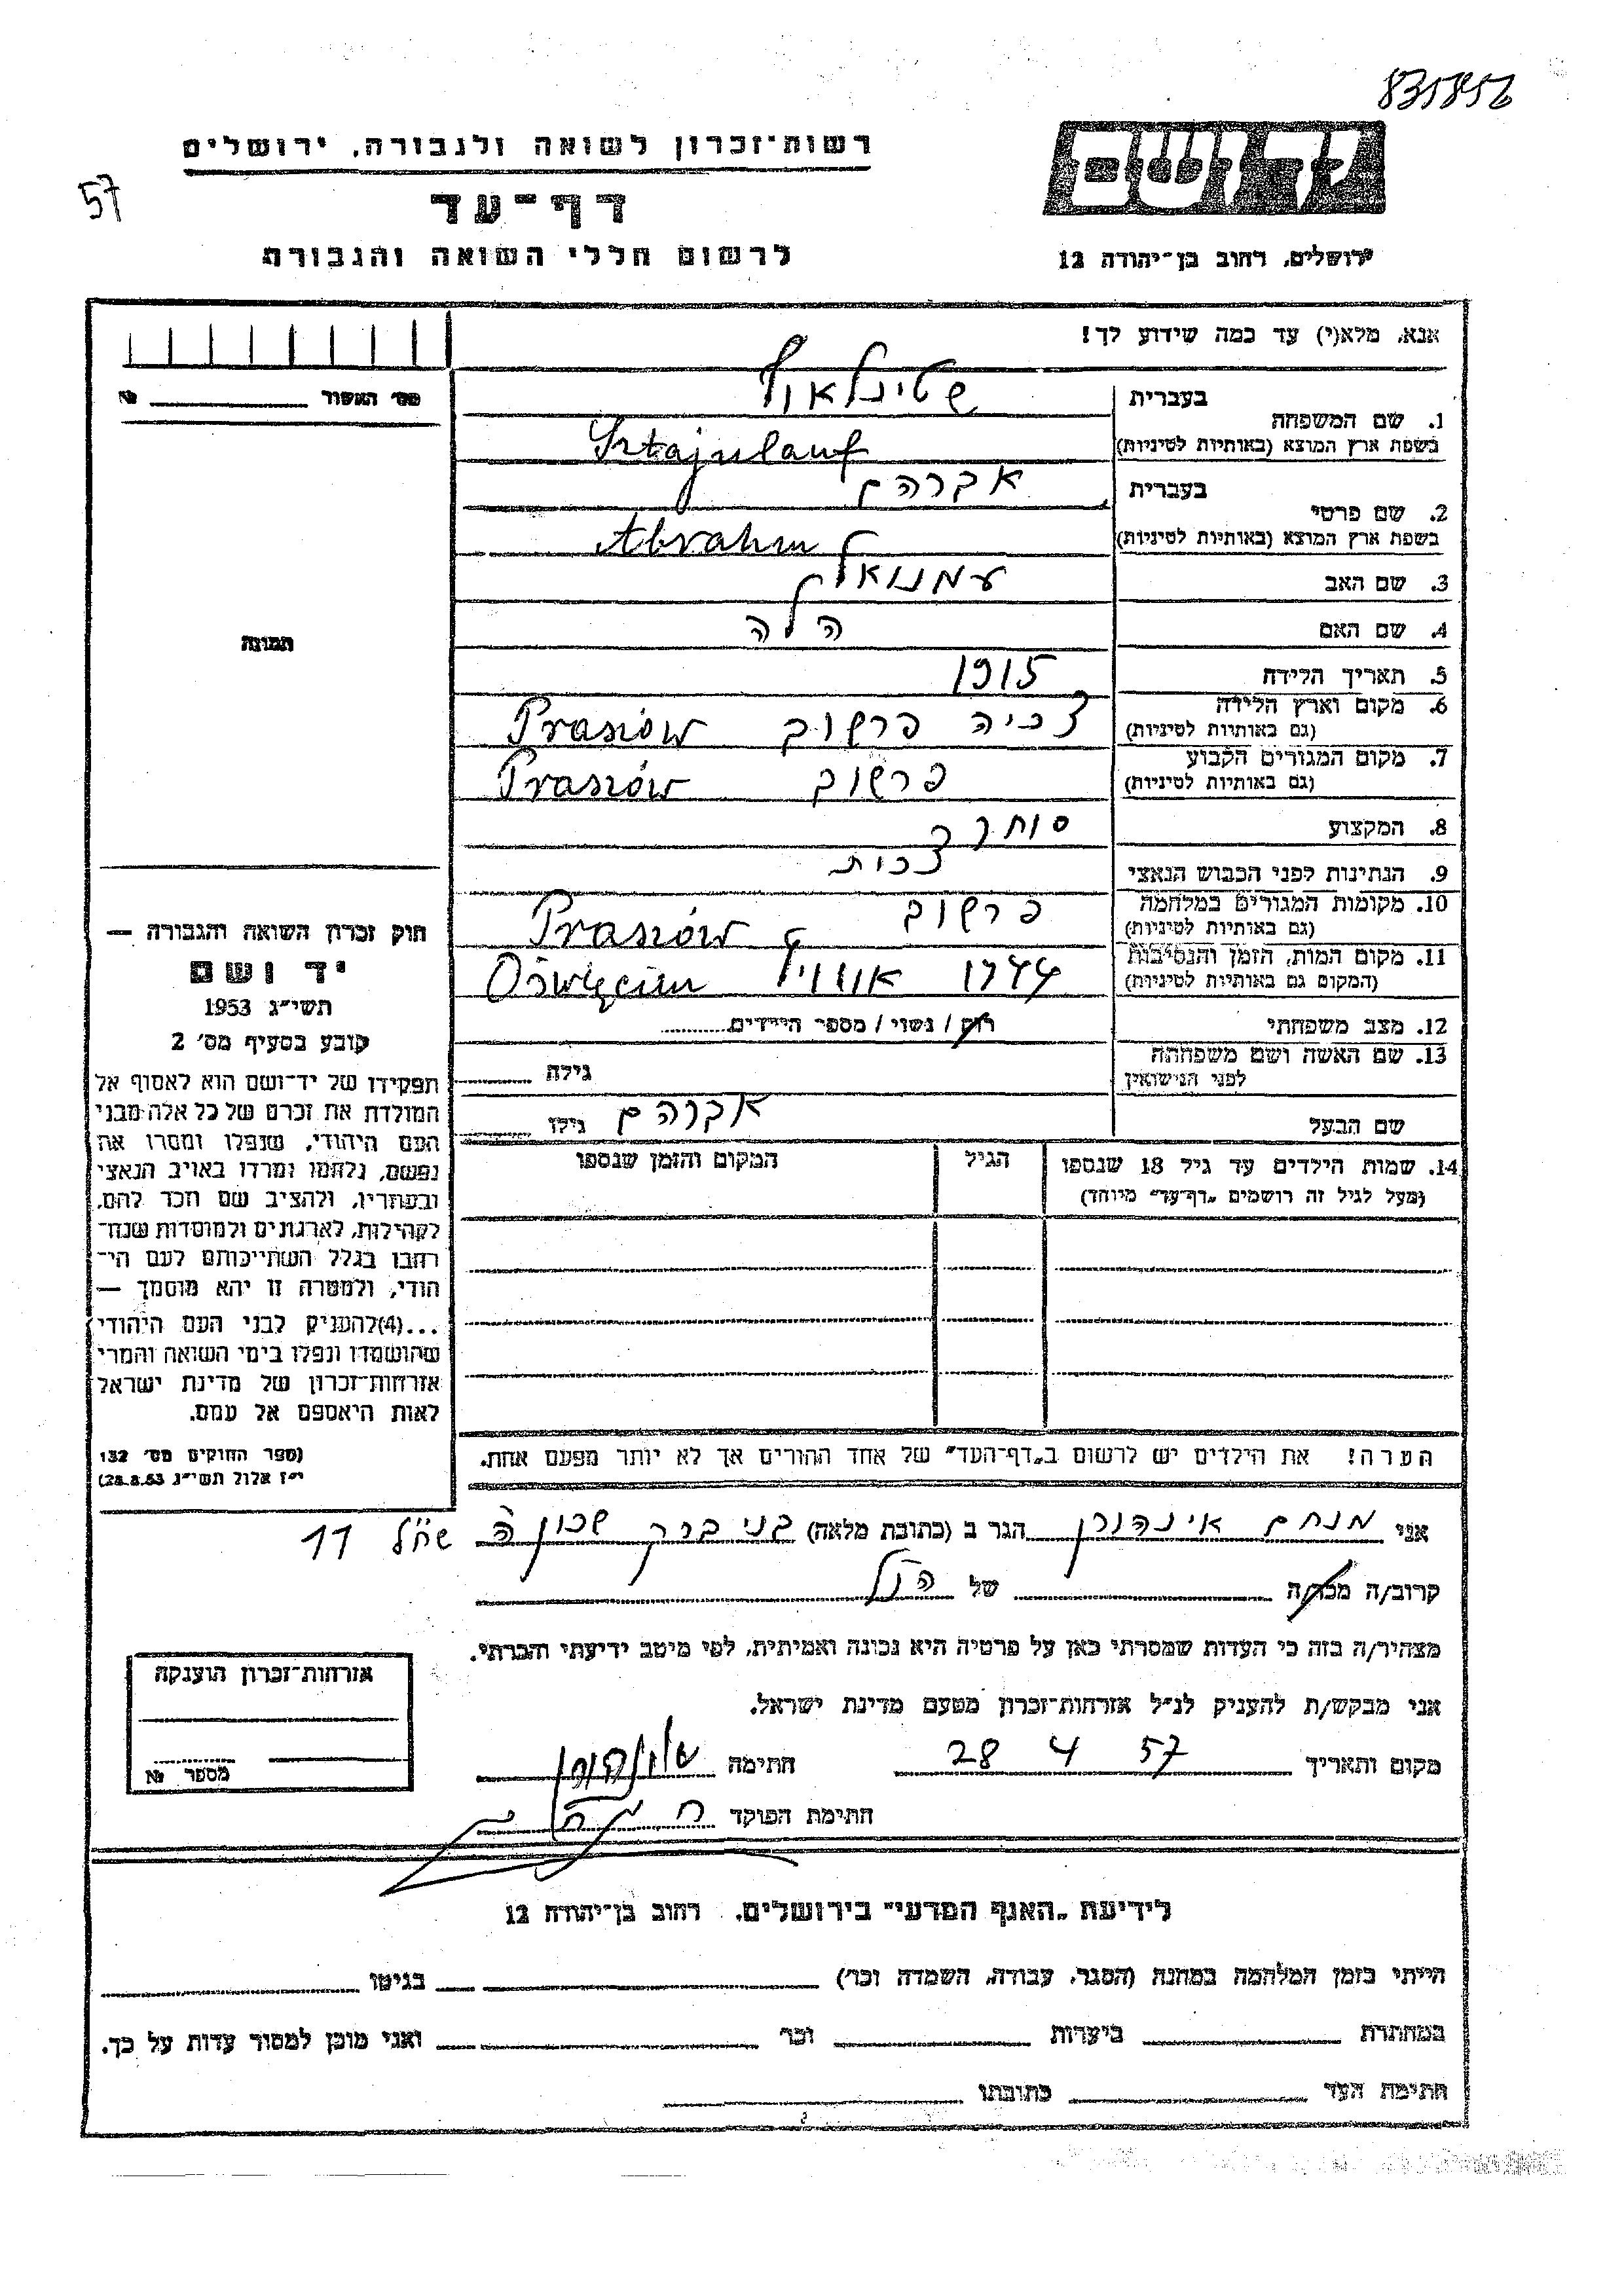 835856
רשות־זכרון לשואה ולגבורה, ירושלים
57
דף־עד
לרשום חללי השואה והגבורה
יד ושם
ירושלים, רחוב בן־יהודה 12
אנא, מלא(י) עד כמה שידוע לך!
מס׳ האשור № ____
תמונה
1. שם המשפחה בעברית שטינלאוף
בשפת ארץ המוצא (באותיות לטיניות) Sztajnlauf
2. שם פרטי בעברית אברהם
בשפת ארץ המוצא (באותיות לטיניות) Abraham
3. שם האב עמנואל
4. שם האם הלה
5. תאריך הלידה 1915
6. מקום וארץ הלידה צכיה פרשוב Prasów
(גם באותיות לטיניות)
7. מקום המגורים הקבוע פרשוב Prasów
(גם באותיות לטיניות)
8. המקצוע סוחר
9. הנתינות לפני הכבוש הנאצי צכית
10. מקומות המגורים במלחמה פרשוב Prasów
(גם באותיות לטיניות)
11. מקום המות, הזמן והנסיבות 1944 Oświęcim
(המקום גם באותיות לטיניות)
12. מצב משפחתי רוק / נשוי / מספר הילדים
13. שם האשה ושם משפחתה גילה
לפני הנישואין
שם הבעל אברהם גילו
14. שמות הילדים עד גיל 18 שנספו הגיל המקום והזמן שנספו
(מעל לגיל זה רושמים „דף־עד״ מיוחד)
הערה! את הילדים יש לרשום ב„דף־העד״ של אחד ההורים אך לא יותר מפעם אחת.
חוק זכרון השואה והגבורה —
יד ושם
תשי״ג 1953
קובע בסעיף מס׳ 2
תפקידו של יד־ושם הוא לאסוף אל
המולדת את זכרם של כל אלה מבני
העם היהודי, שנפלו ומסרו את
נפשם, נלחמו ומרדו באויב הנאצי
ובעוזריו, ולהציב שם וזכר להם,
לקהילות, לארגונים ולמוסדות שנח־
רבו בגלל השתייכותם לעם הי־
הודי, ולמטרה זו יהא מוסמך —
...(4)להעניק לבני העם היהודי
שהושמדו ונפלו בימי השואה והמרי
אזרחות־זכרון של מדינת ישראל
לאות היאספם אל עמם.
(ספר החוקים מס׳ 132
י״ז אלול תשי״ג 28.8.53)
אני מנחם אינהורן הגר ב (כתובת מלאה) בני ברק שכון ה 11
קרוב/ה מכר/ה של הנ״ל
מצהיר/ה בזה כי העדות שמסרתי כאן על פרטיה היא נכונה ואמיתית, לפי מיטב ידיעתי והכרתי.
אני מבקש/ת להעניק לנ״ל אזרחות־זכרון מטעם מדינת ישראל.
מקום ותאריך 28 4 57 חתימה
חתימת הפוקד
אזרחות־זכרון הוענקה
מספר №
לידיעת „האגף המדעי״ בירושלים, רחוב בן־יהודה 12
הייתי בזמן המלחמה במחנה (הסגר, עבודה, השמדה וכו׳) ____ בגיטו
במחתרת ____ ביערות ____ וכו׳ ____ ואני מוכן למסור עדות על כך.
חתימת העד ____ כתובתו